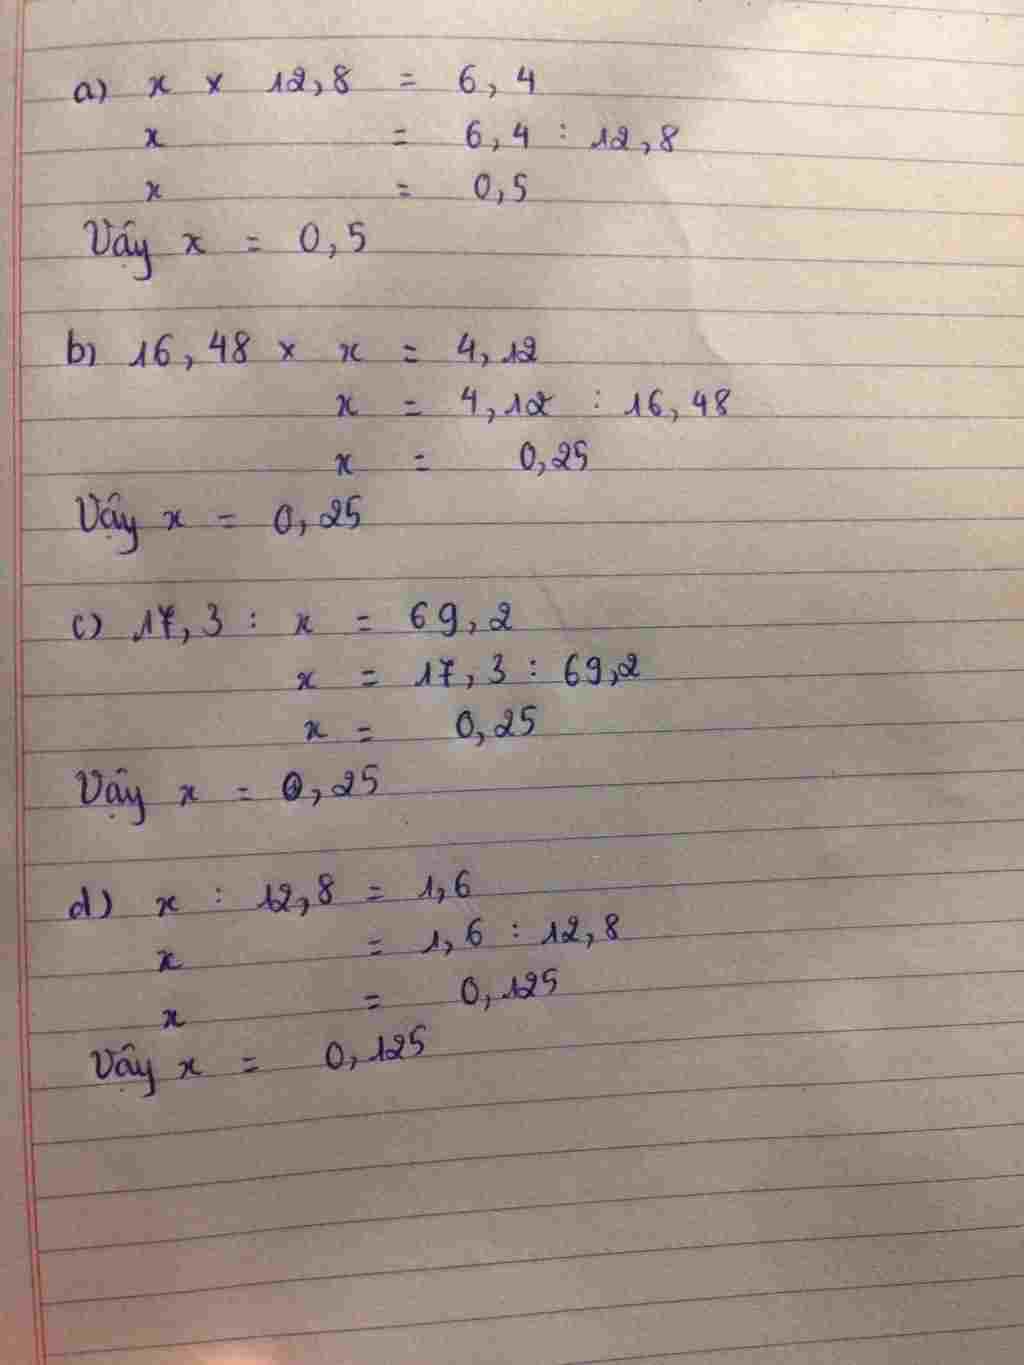 a) x × 12,8 = 6,4
x = 6,4 : 12,8
x = 0,5
Vậy x = 0,5
b) 16,48 × x = 4,12
x = 4,12 : 16,48
x = 0,25
Vậy x = 0,25
c) 17,3 : x = 69,2
x = 17,3 : 69,2
x = 0,25
Vậy x = 0,25
d) x : 12,8 = 1,6
x = 1,6 : 12,8
x = 0,125
Vậy x = 0,125